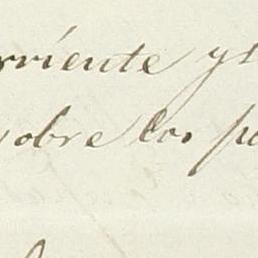 rriente y
sobre los p